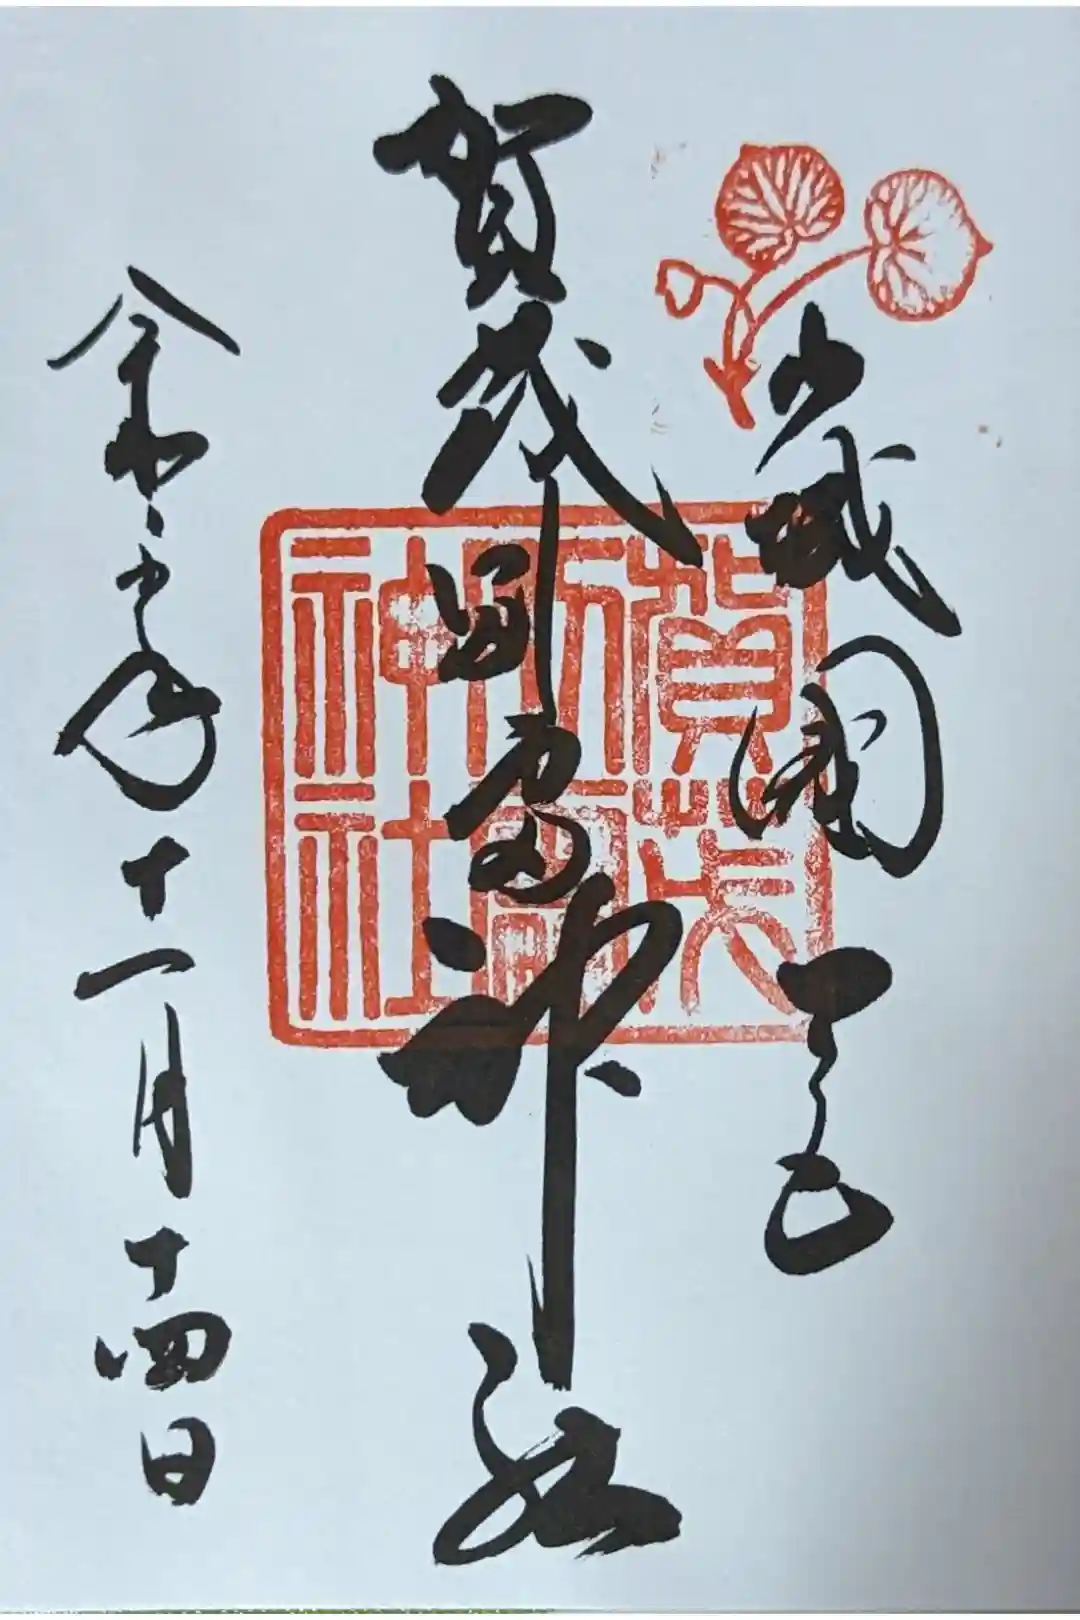 山城國一之宮
賀茂別雷神社
令和年十一月十四日
賀茂
別雷
神社